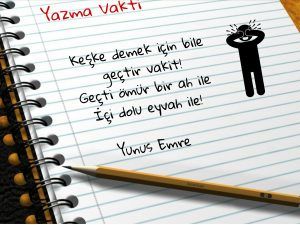 Yazma Vakti
Keşke demek için bile
geçtir vakit!
Geçti ömür bir ah ile
İçi dolu eyvah ile!
Yunus Emre